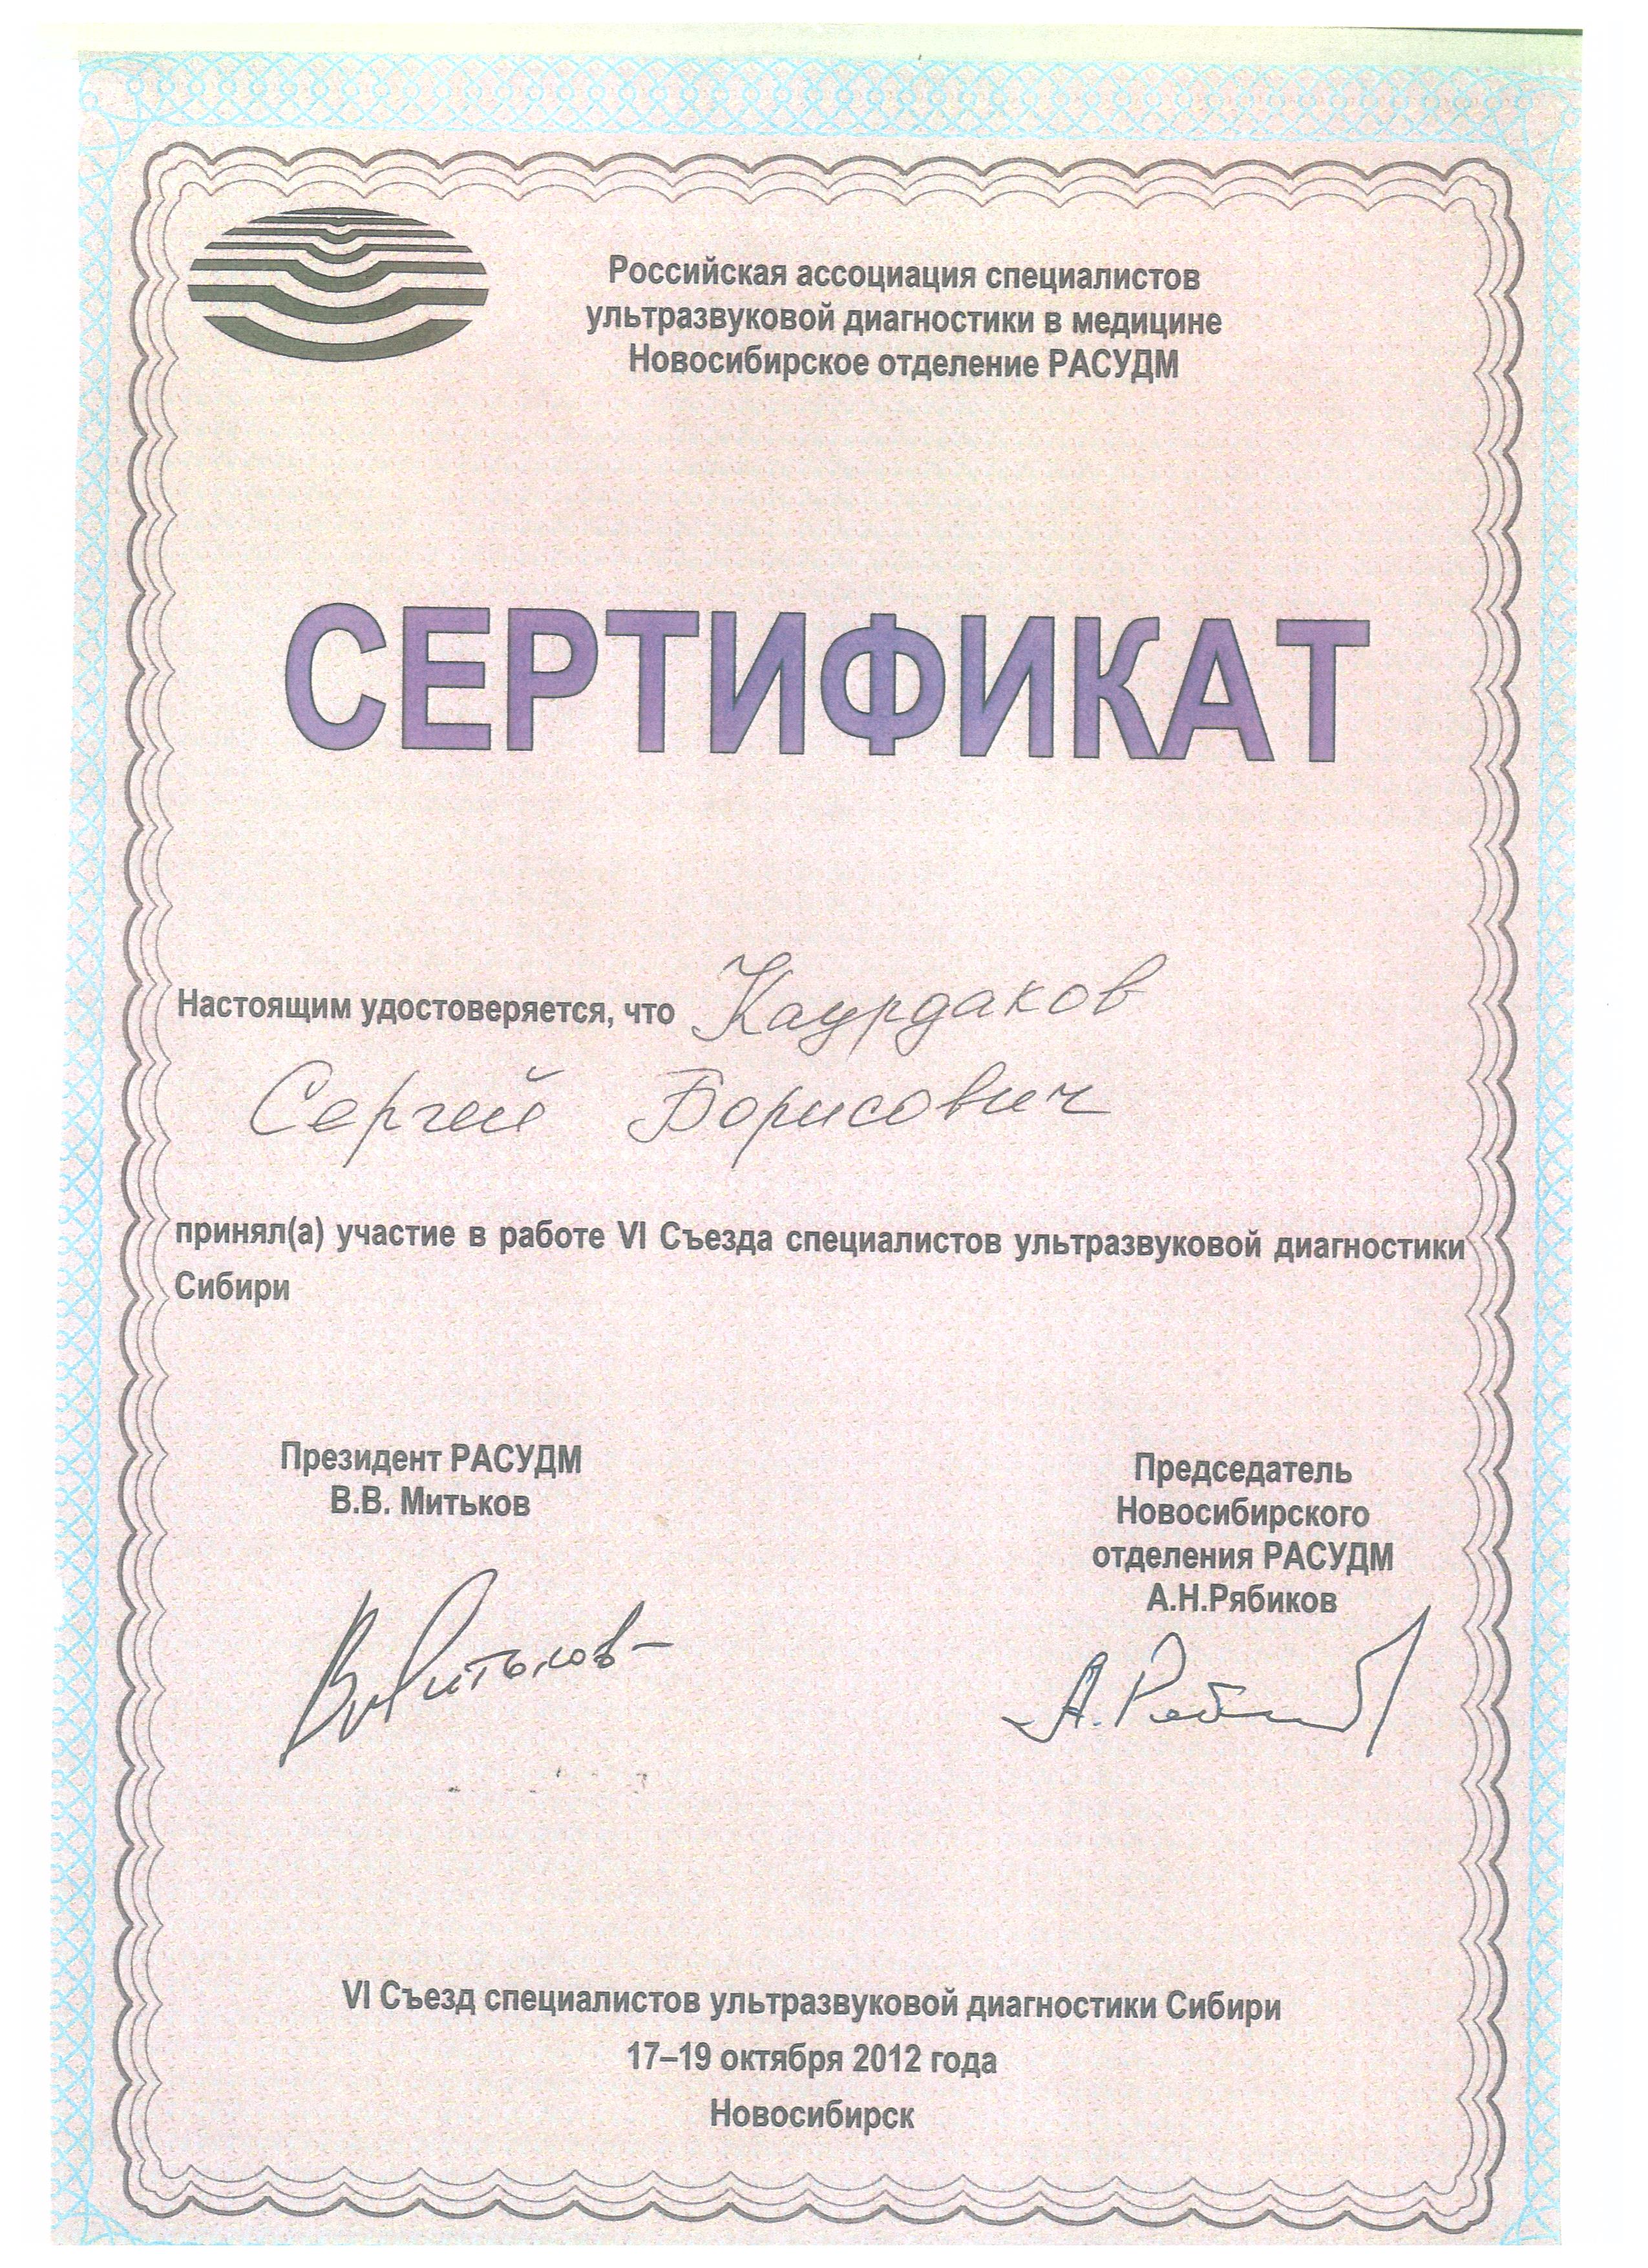 Российская ассоциация специалистов
ультразвуковой диагностики в медицине
Новосибирское отделение РАСУДМ
СЕРТИФИКАТ
Настоящим удостоверяется, что Каурдаков
Сергей Борисович
принял(а) участие в работе VI Съезда специалистов ультразвуковой диагностики
Сибири
Президент РАСУДМ
В.В. Митьков
Председатель
Новосибирского
отделения РАСУДМ
А.Н.Рябиков
VI Съезд специалистов ультразвуковой диагностики Сибири
17–19 октября 2012 года
Новосибирск